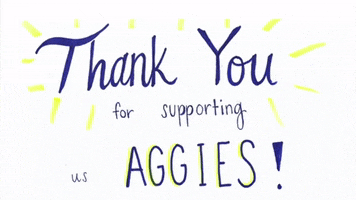 Thank You
for supporting
us AGGIES!